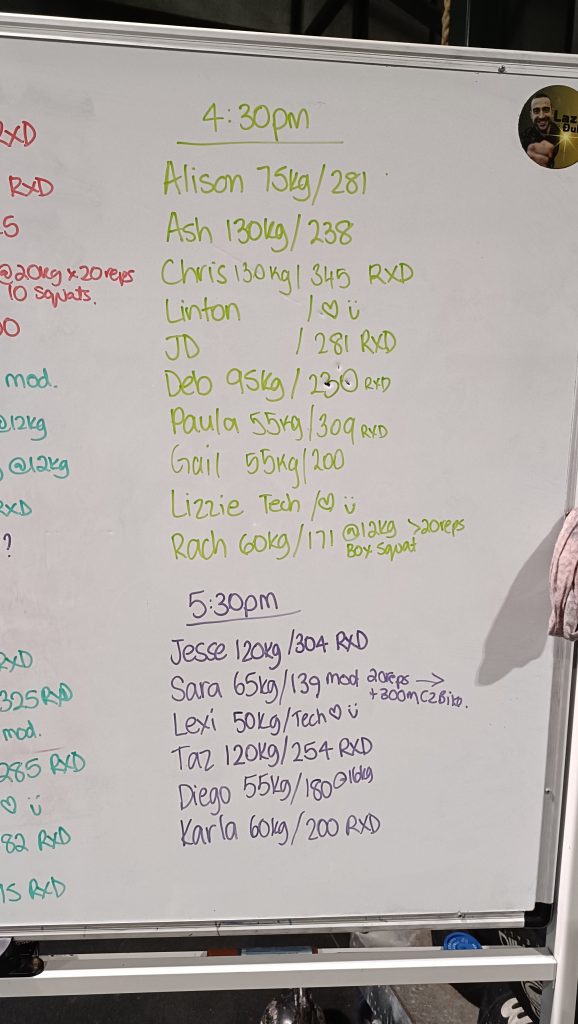 RXD
RXD
5
@20kg x 20reps
10 squats.
0
mod.
@12kg
@12kg
RXD
?
RXD
325 RXD
mod.
285 RXD
♡ ü
82 RXD
15 RXD
4:30pm
Alison 75kg/281
Ash 130kg/238
Chris 130kg/345 RXD
Linton /♡ ü
JD /281 RXD
Deb 95kg/230 RXD
Paula 55kg/309 RXD
Gail 55kg/200
Lizzie Tech /♡ ü
Rach 60kg/171 @12kg >20reps
Box Squat
5:30pm
Jesse 120kg/304 RXD
Sara 65kg/139 mod 20reps →
+300m C2 Bike.
Lexi 50kg/Tech ♡ ü
Taz 120kg/254 RXD
Diego 55kg/180 @16kg
Karla 60kg/200 RXD